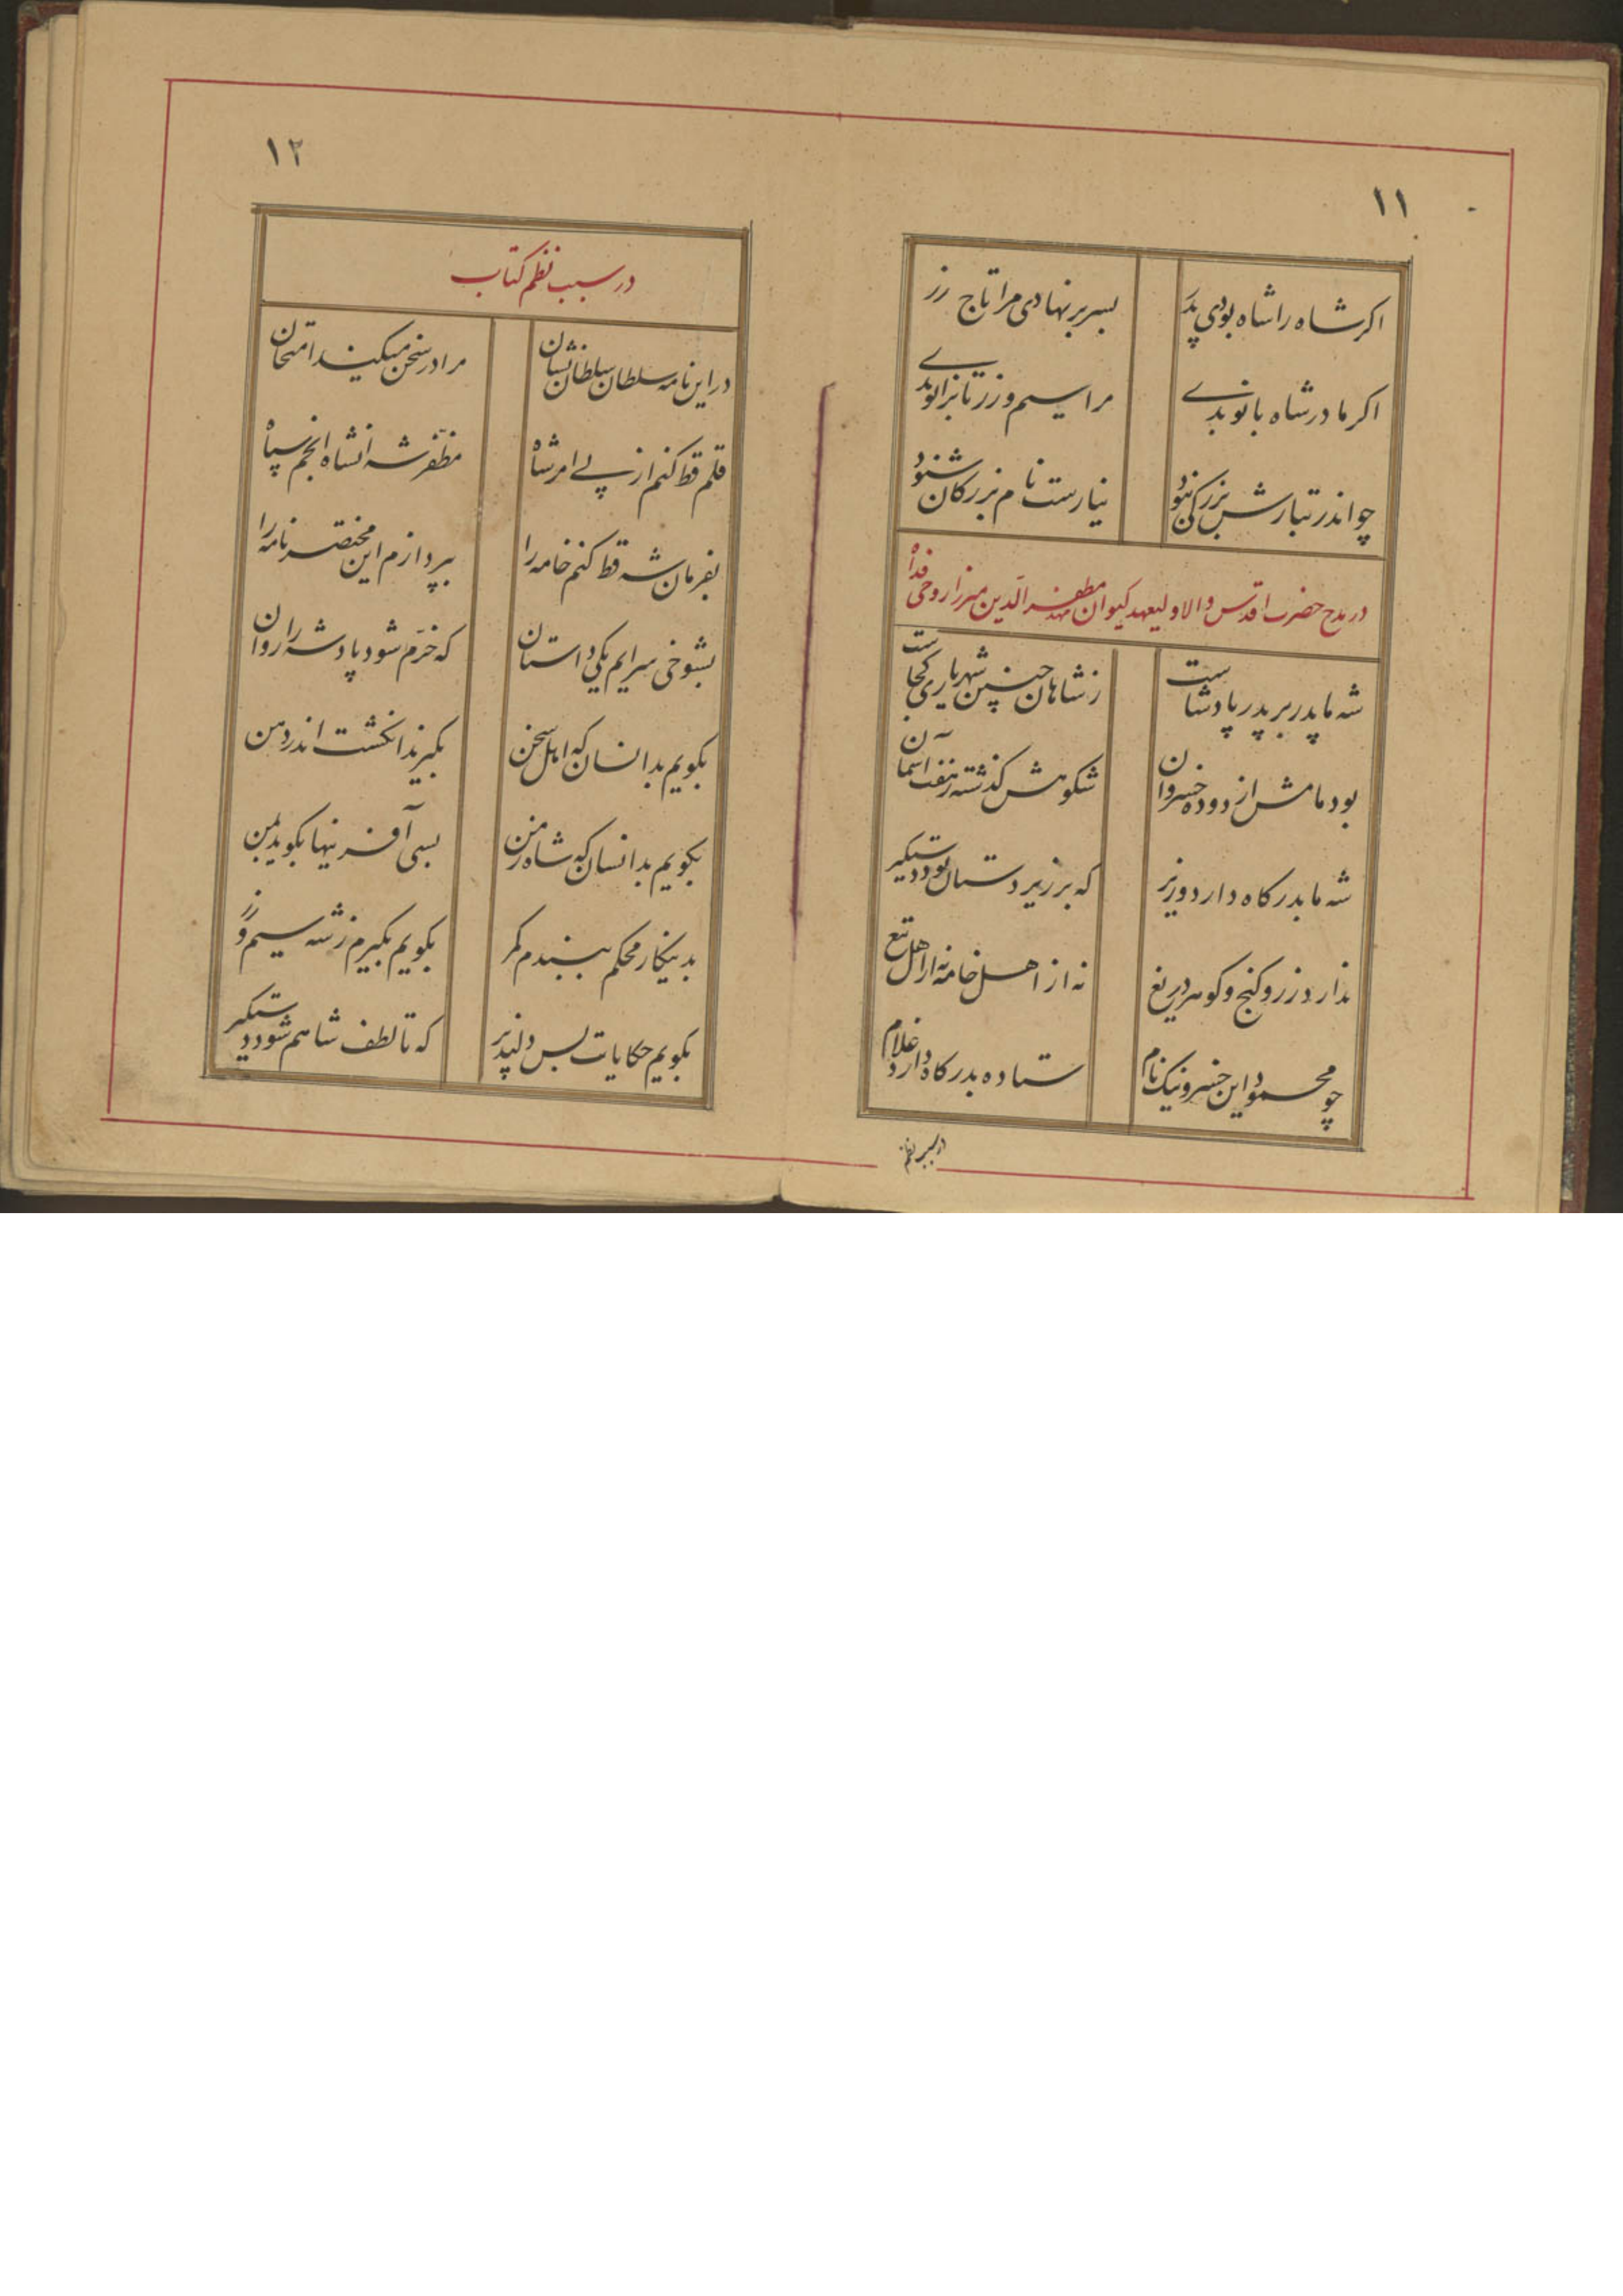 ۱۱
اکر شاه را شاه بودی پدر بسر بر نهادی مرا تاج زر
اکر مادر شاه بانو بدے مرا سیم و زر تا بزانو بدے
چو اندر تبارش بزرکی نبود نیارست نام بزرکان شنود
در مدح حضرت اقدس والا ولیعهد کیوان مهد مظفر الدین میرزا روحی فداه
شه ما پدر بر پدر پادشاست ز شاهان چنین شهریاری کجاست
بود مامش از دوده خسروان شکوهش کذشته ز هفت آسمان
شه ما بدرکاه دارد وزیر که بر زیر دستان بود دستکیر
ندارد زر و کنج و کوهر دریغ نه از اهل خامه نه از اهل تیغ
چو محمود این خسرو نیک نام ستاده بدرکاه دارد غلام
در سبب نظم
۱۲
در سبب نظم کتاب
در این نامه سلطان سلطان نشان مرا در سخن میکند امتحان
قلم قط کنم از پے امر شاه مظفر شهنشاه انجم سپاه
بفرمان شه قط کنم خامه را بپردازم این مختصر نامه را
بشوخی سرایم یکی داستان که خرّم شود پادشه را روان
بکویم بدانسان که اهل سخن بکیرند انکشت اندر دهن
بکویم بدانسان که شاه زمن بسی آفرینها بکوید بمن
بدینکار محکم ببندم کمر بکویم بکیرم ز شه سیم و زر
بکویم حکایات بس دلپذیر که تا لطف شاهم شود دستکیر